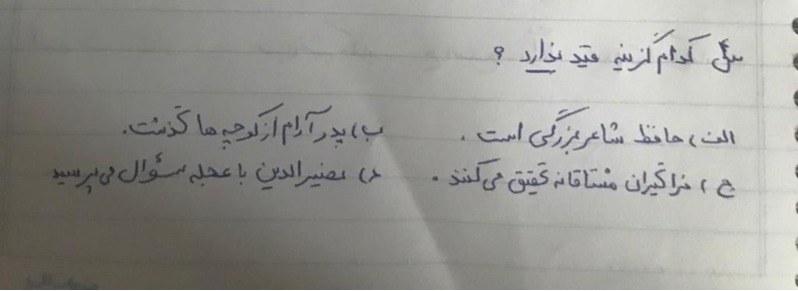 سؤال کدام گزینه قید ندارد ؟
الف) حافظ شاعر بزرگی است . ب) پدر آرام از کوچه ها گذشت.
ج) فراگیران مشتاقانه تحقیق می کنند . د) نصیرالدین با عجله سؤال می پرسید